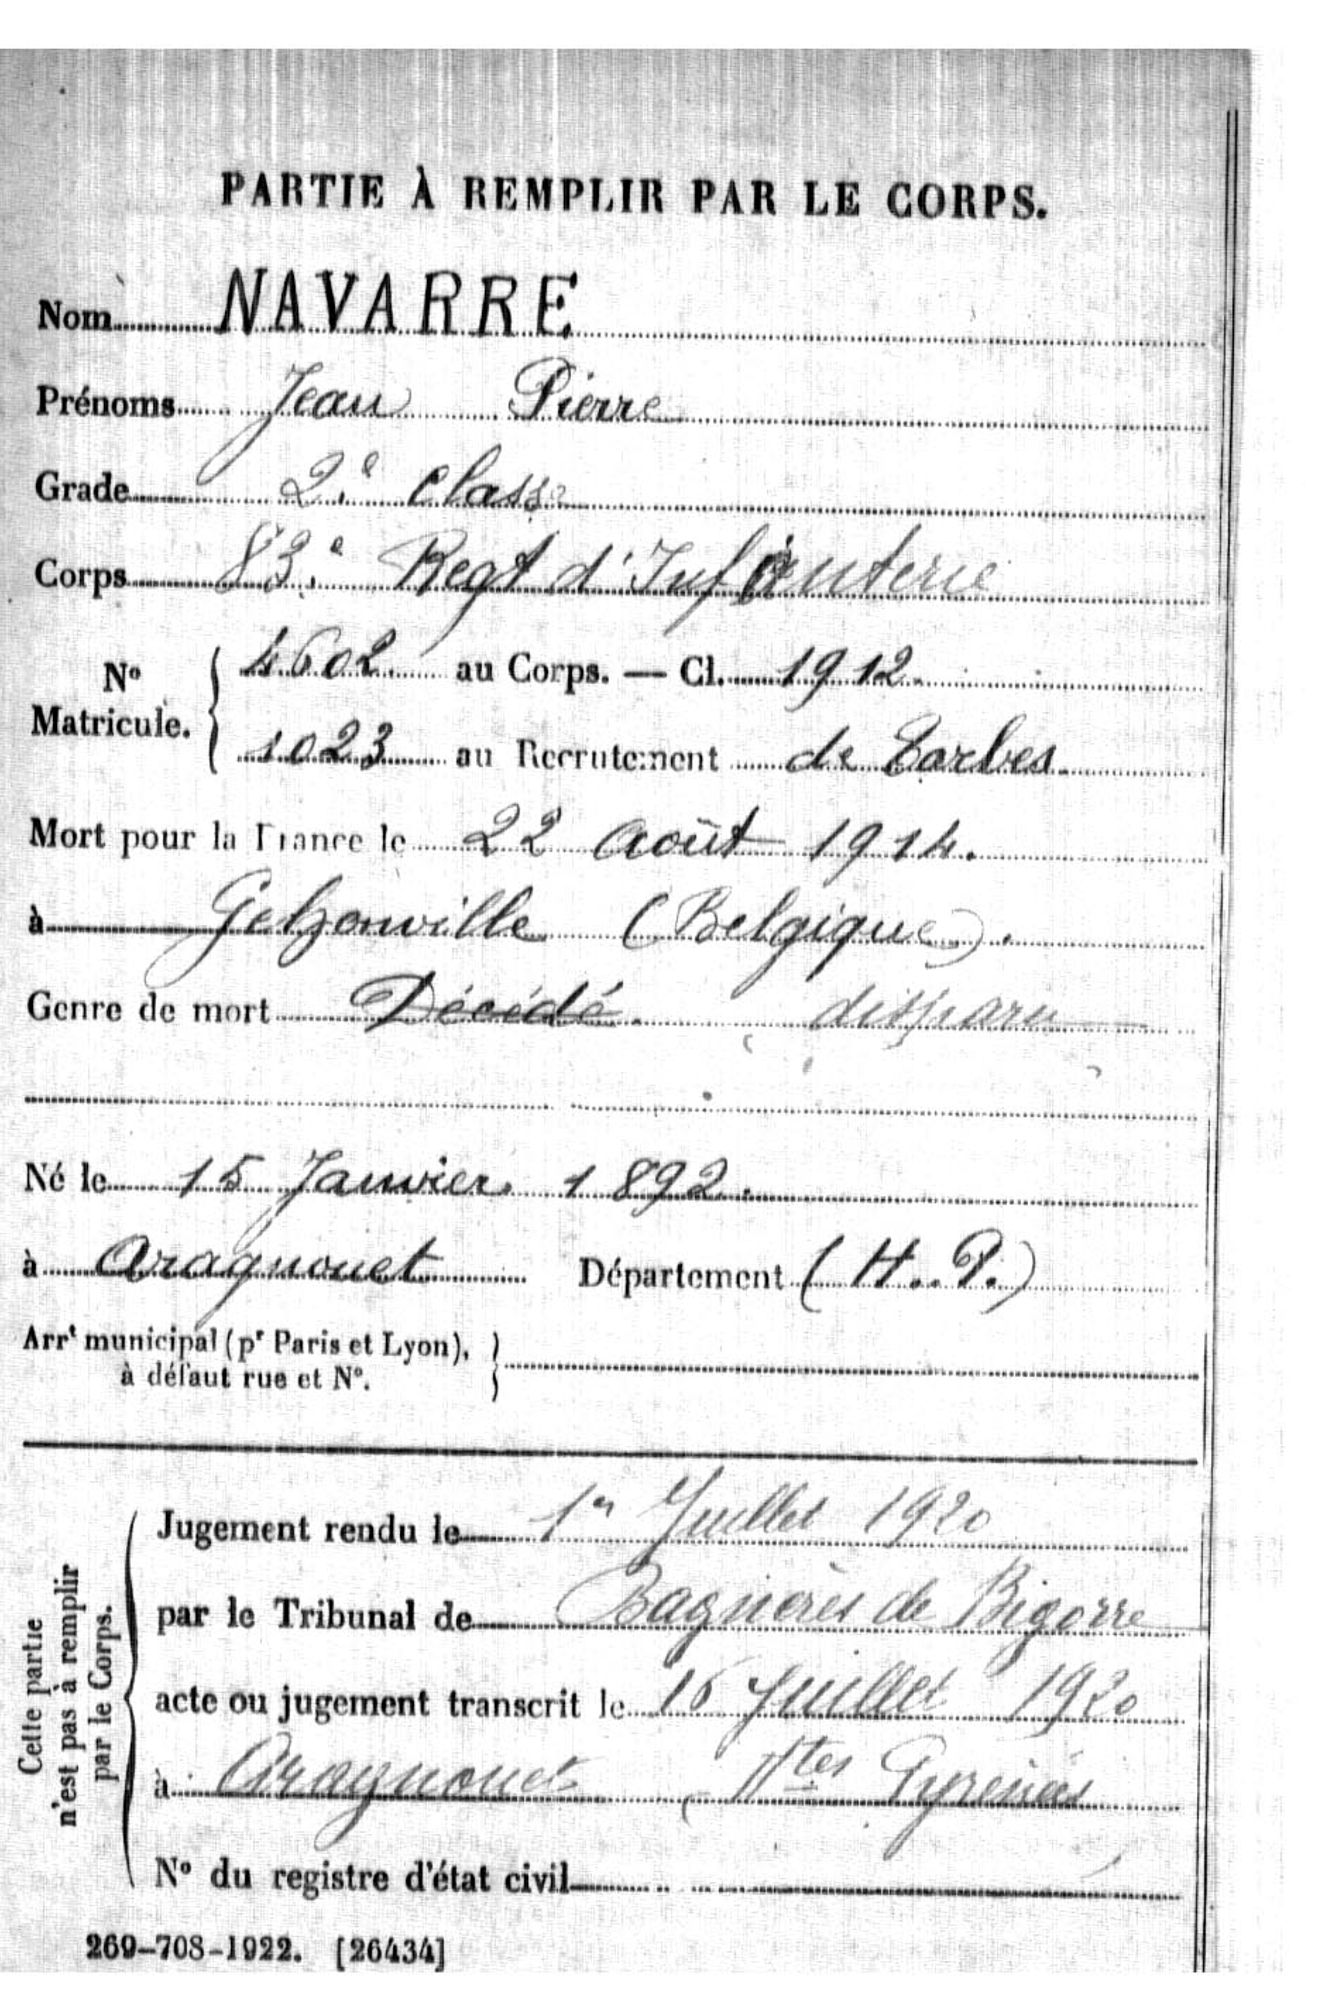 PARTIE À REMPLIR PAR LE CORPS.
Nom NAVARRE
Prénoms Jean Pierre
Grade 2.e classe
Corps 83.e Regt d'Infanterie
No Matricule.
4602 au Corps. — Cl. 1912
1023 au Recrutement de Tarbes
Mort pour la France le 22 Août 1914.
à (Belgique).
Genre de mort Décédé. disparu
Né le 15 Janvier 1892.
à Aragnouet Département (H.P.)
Arrt municipal (pr Paris et Lyon),
à défaut rue et No.
Cette partie
n'est pas à remplir
par le Corps.
Jugement rendu le 1er Juillet 1920
par le Tribunal de Bagnères de Bigorre
acte ou jugement transcrit le 16 Juillet 1920
à Aragnouet Htes Pyrénées
No du registre d'état civil
269-708-1922. [26434]